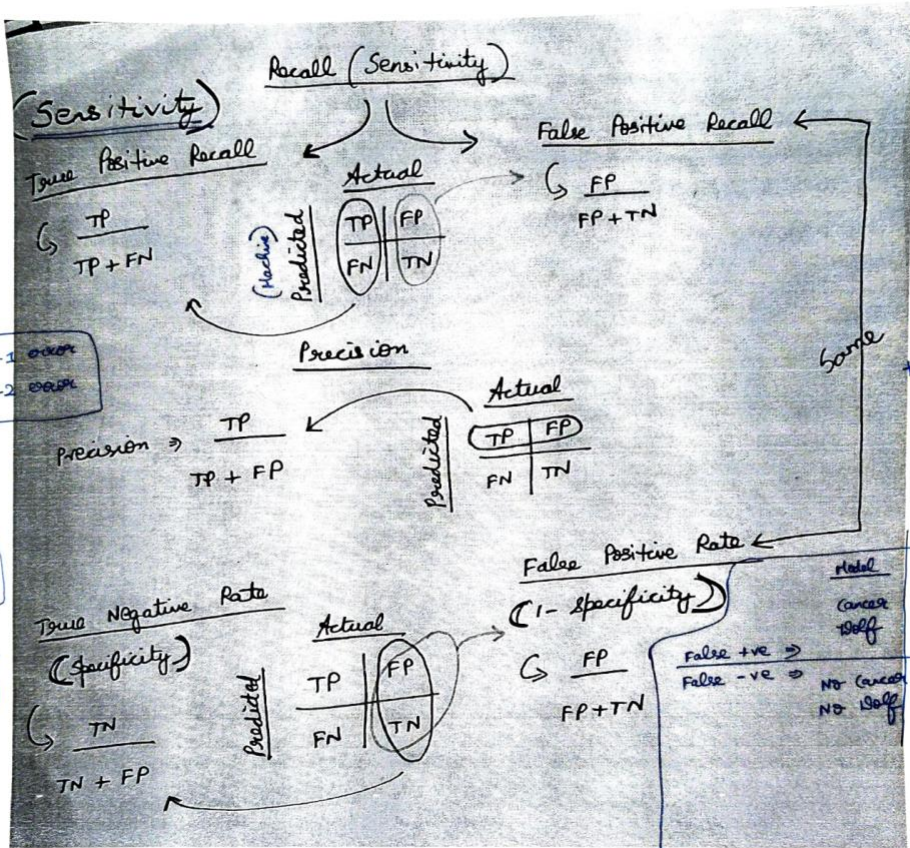 Recall (Sensitivity)
(Sensitivity)
True Positive Recall
TP
TP + FN
Actual
(Machine)
Predicted
TP FP
FN TN
False Positive Recall
FP
FP + TN
Same
-1 error
-2 error
Precision
Precision ⇒ TP
TP + FP
Actual
Predicted
TP FP
FN TN
True Negative Rate
(Specificity)
TN
TN + FP
Actual
Predicted
TP FP
FN TN
False Positive Rate
(1 - Specificity)
FP
FP + TN
Model
Cancer
Wolf
False +ve ⇒
False -ve ⇒ No Cancer
No Wolf